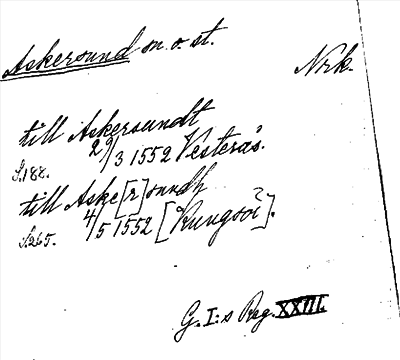 Askersund sn o. st.
Nrk.
till Askersundt
29/3 1552 Vesterås.
S. 188.
till Aske[r]sundh
4/5 1552 [Kungsör].
S. 265.
G. I:s Reg. XXIII.